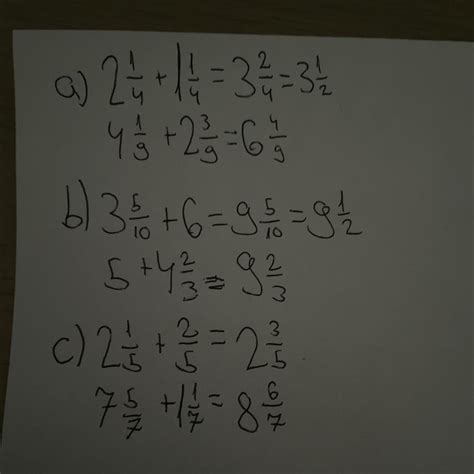 a) 2 1/4 + 1 1/4 = 3 2/4 = 3 1/2
4 1/9 + 2 3/9 = 6 4/9
b) 3 5/10 + 6 = 9 5/10 = 9 1/2
5 + 4 2/3 = 9 2/3
c) 2 1/5 + 2/5 = 2 3/5
7 5/7 + 1 1/7 = 8 6/7